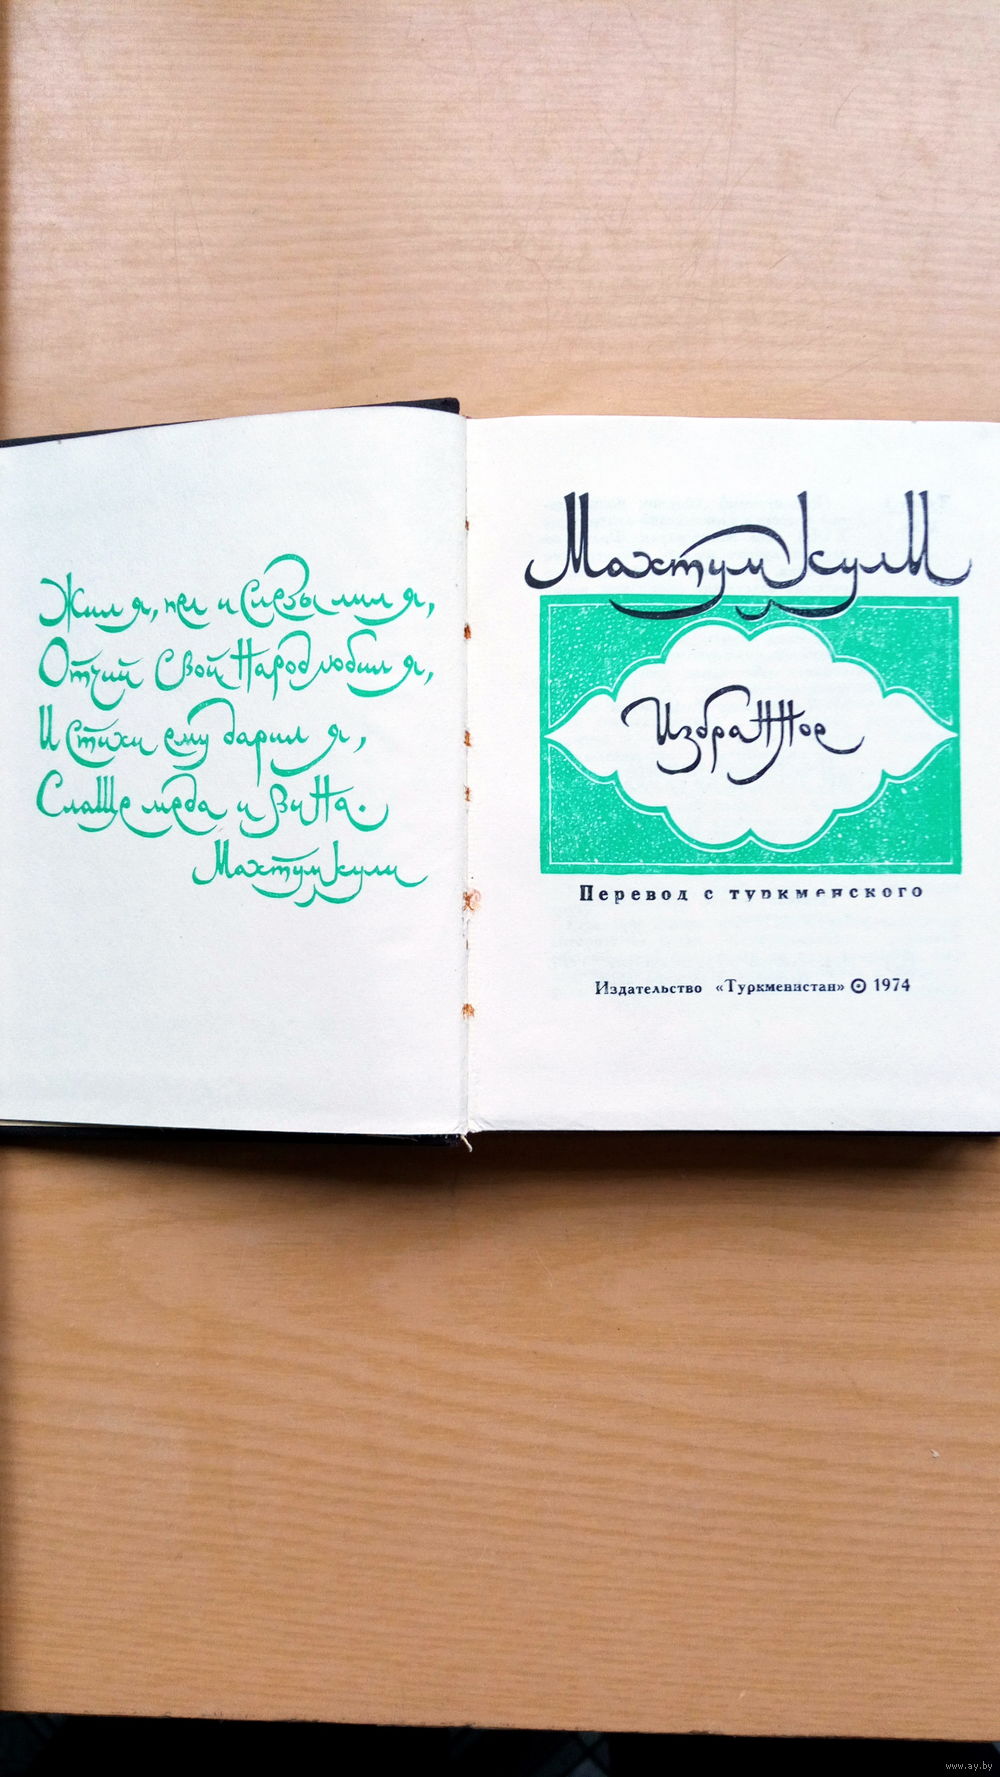 Жил я, пел и слезы лил я,
Отчий свой народ любил я,
И стихи ему дарил я,
Слаще меда и вина.
Махтумкули
Махтумкули
Избранное
Перевод с туркменского
Издательство «Туркменистан» © 1974
www.ay.by